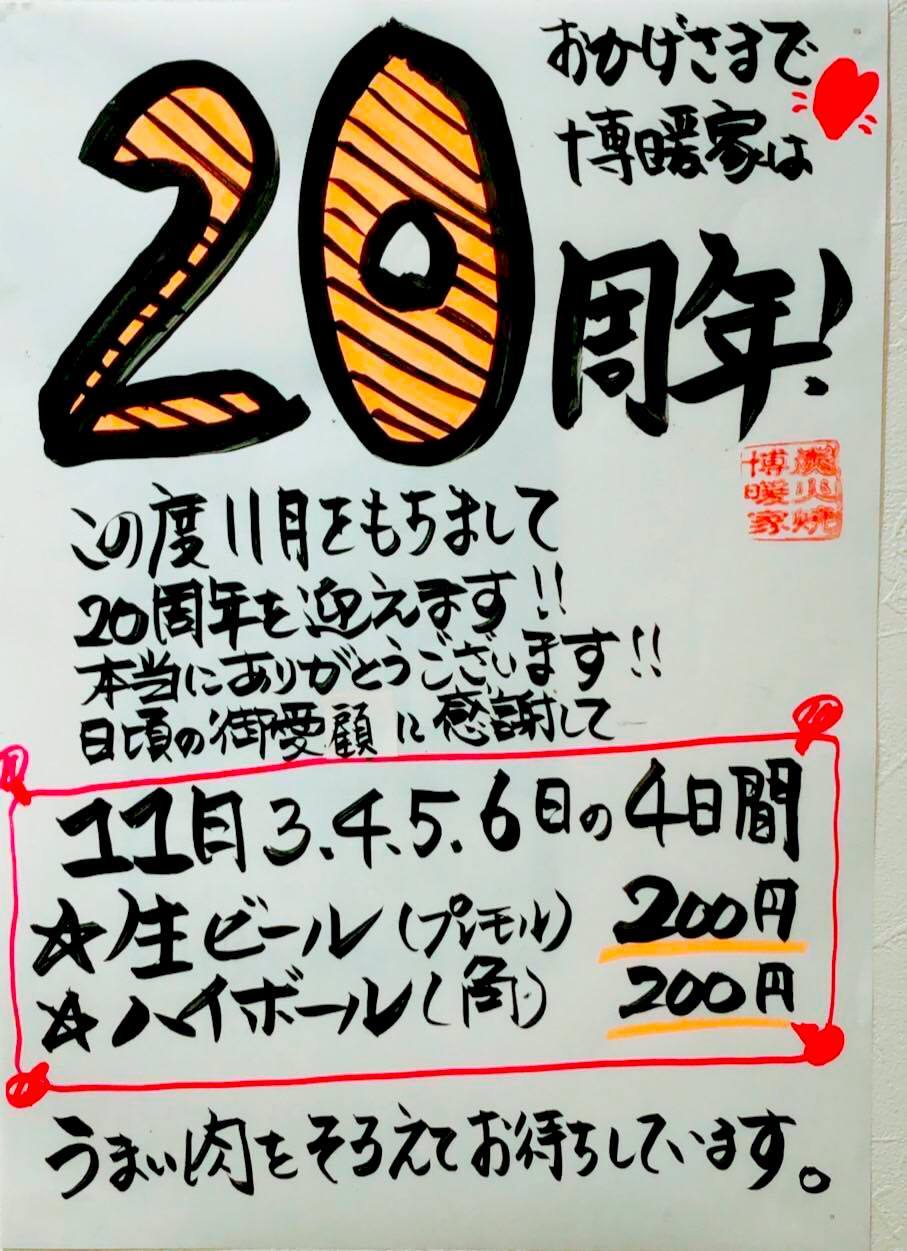 おかげさまで
博暖家は
20周年!
炭火焼
博暖家
この度11月をもちまして
20周年を迎えます!!
本当にありがとうございます!!
日頃の御愛顧に感謝して
11月3.4.5.6日の4日間
☆生ビール(プレモル) 200円
☆ハイボール(角) 200円
うまい肉をそろえてお待ちしています。